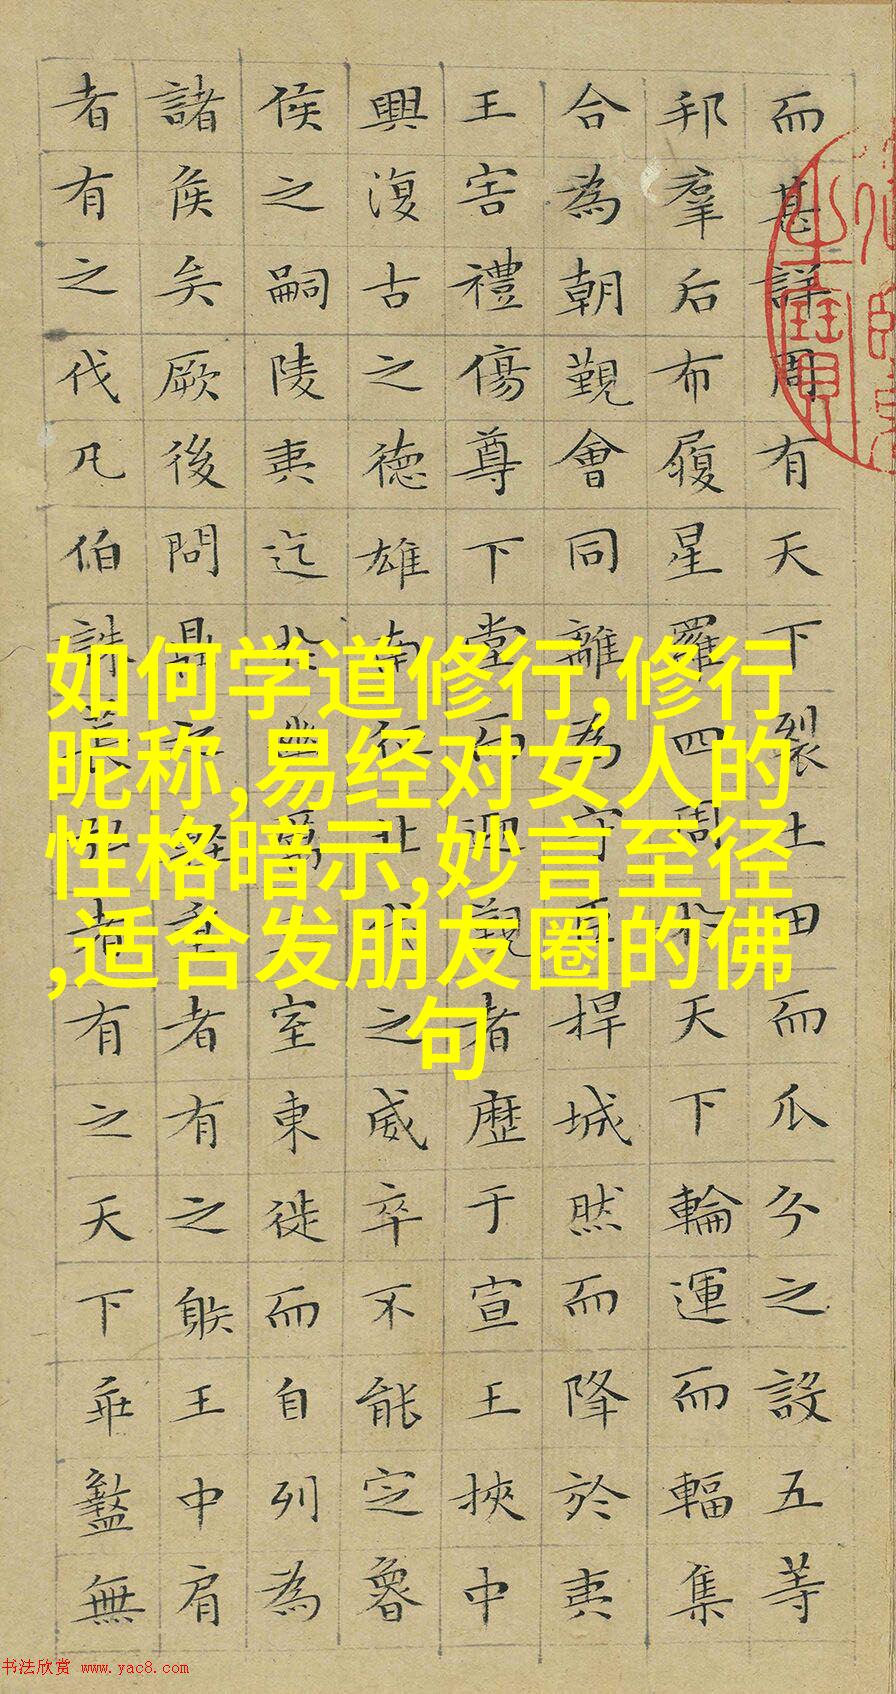 而甚詳周有天下裂土田而瓜分之設五等
邦羣后布履星羅四周於天下輪運而輻集
合為朝覲會同離為守臣捍城然而降於夷
王害禮傷尊下堂而迎覲者歷于宣王挾中
興復古之德雄南征北伐之威卒不能定魯
侯之嗣陵夷迄於幽厲王室東徙而自列為
諸侯矣厥後問鼎之輕重者有之躲王中肩
者有之伐凡伯誅萇弘者有之天下乖盭無
如何学道修行,修行
昵称,易经对女人的
性格暗示,妙言至径
,适合发朋友圈的佛
句
书法欣赏 www.yac8.com